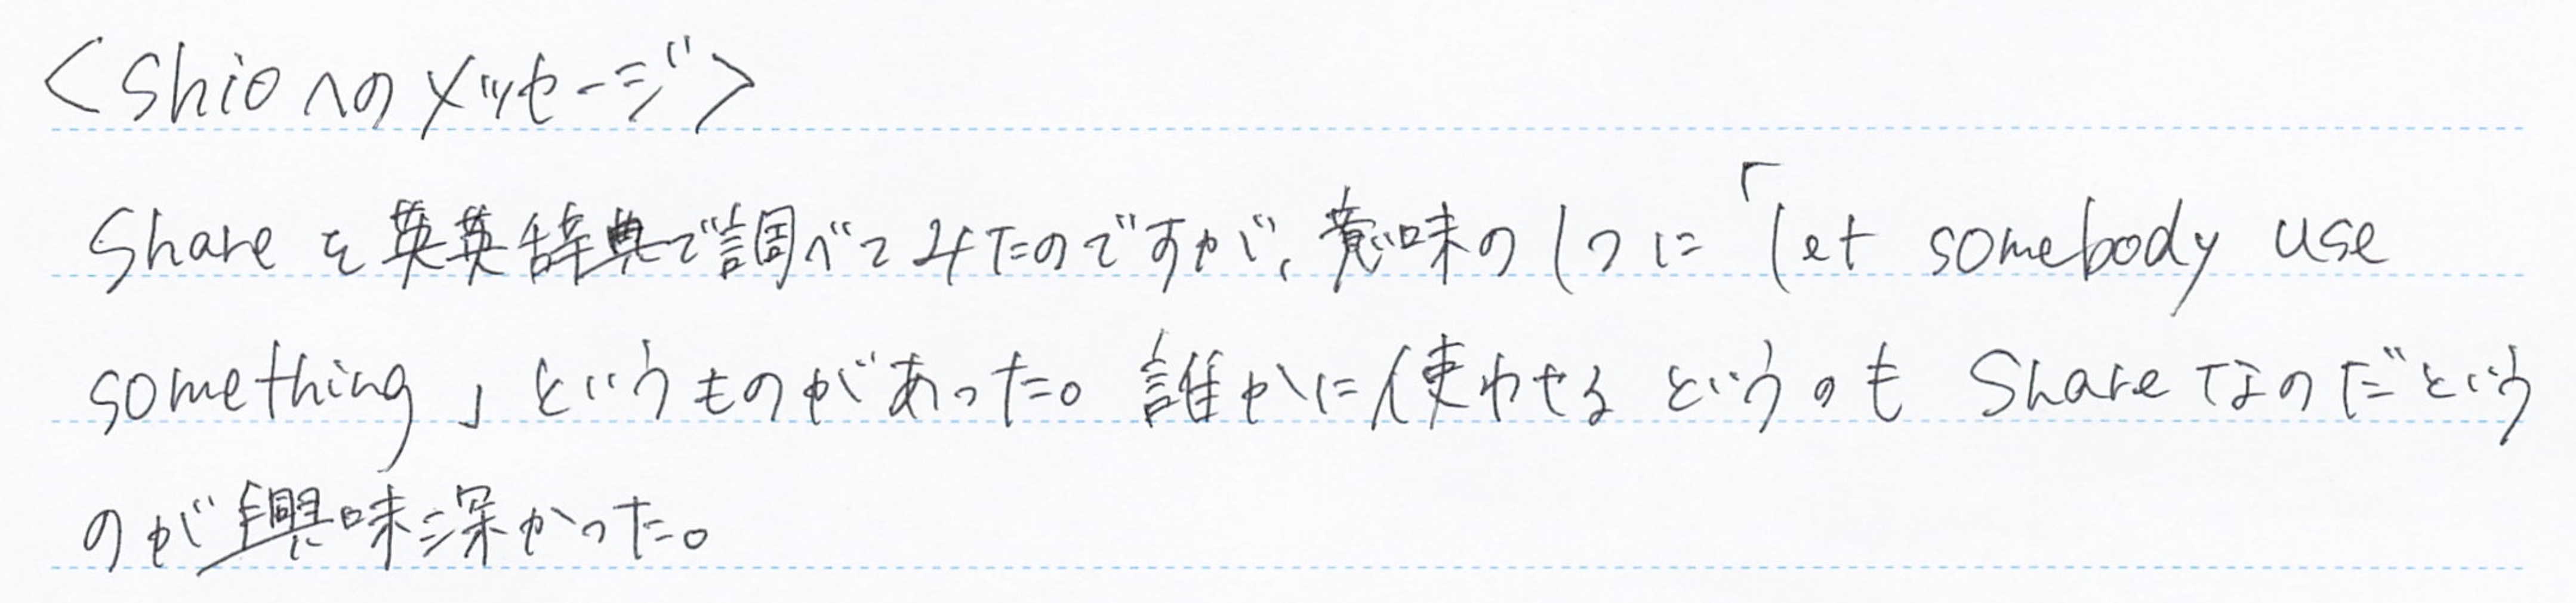 <shioへのメッセージ>
Shareを英英辞典で調べてみたのですが、意味の1つに「let somebody use
something」というものがあった。誰かに使わせるというのもShareなのだという
のが興味深かった。